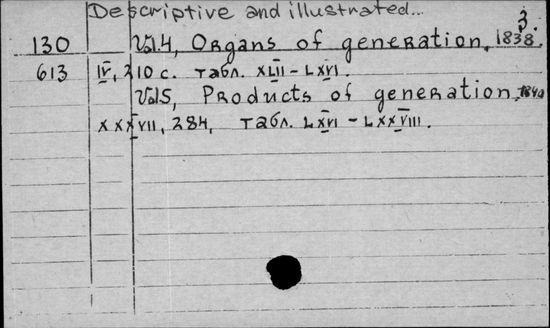 Descriptive and illustrated...
3.
130 Vol.4, Organs of generation, 1838.
613 IV, 210 с. табл. XLII - LXVI.
Vol.5, Products of generation, 1840
XXXVII, 284, табл. LXVI - LXXVIII.